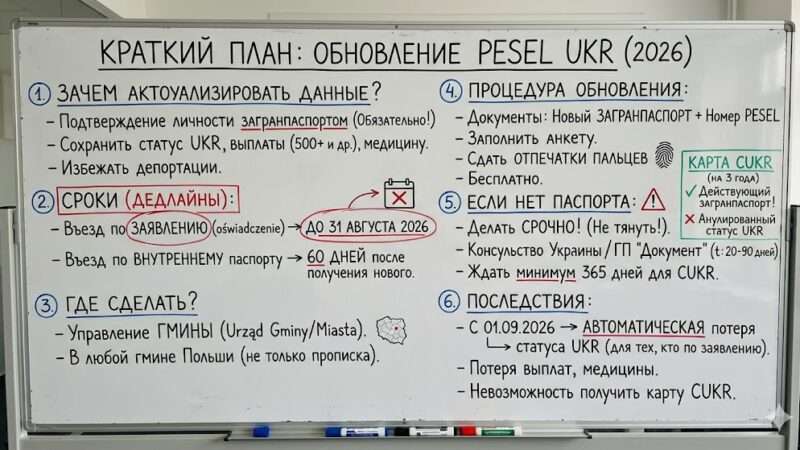 КРАТКИЙ ПЛАН: ОБНОВЛЕНИЕ PESEL UKR (2026)
1. ЗАЧЕМ АКТОУАЛИЗИРОВАТЬ ДАННЫЕ?
– Подтверждение личности загранпаспортом (Обязательно!)
– Сохранить статус UKR, выплаты (500+ и др.), медицину.
– Избежать депортации.
2. СРОКИ (ДЕДЛАЙНЫ):
– Въезд по ЗАЯВЛЕНИЮ (oświadczenie) → ДО 31 АВГУСТА 2026
– Въезд по ВНУТРЕННЕМУ паспорту → 60 ДНЕЙ после
получения нового.
3. ГДЕ СДЕЛАТЬ?
– Управление ГМИНЫ (Urząd Gminy/Miasta).
– В любой гмине Польши (не только прописка).
4. ПРОЦЕДУРА ОБНОВЛЕНИЯ:
– Документы: Новый ЗАГРАНПАСПОРТ + Номер PESEL
– Заполнить анкету.
– Сдать ОТПЕЧАТКИ ПАЛЬЦЕВ
– Бесплатно.
КАРТА CUKR
(на 3 года)
✓ Действующий
загранпаспорт!
✗ Анулированный
статус UKR
5. ЕСЛИ НЕТ ПАСПОРТА:
– Делать СРОЧНО! (Не тянуть!).
– Консульство Украины/ГП "Документ" (t: 20-90 дней)
– Ждать минимум 365 дней для CUKR.
6. ПОСЛЕДСТВИЯ:
– С 01.09.2026 → АВТОМАТИЧЕСКАЯ потеря
→ статуса UKR (для тех, кто по заявлению).
– Потеря выплат, медицины.
– Невозможность получить карту CUKR.